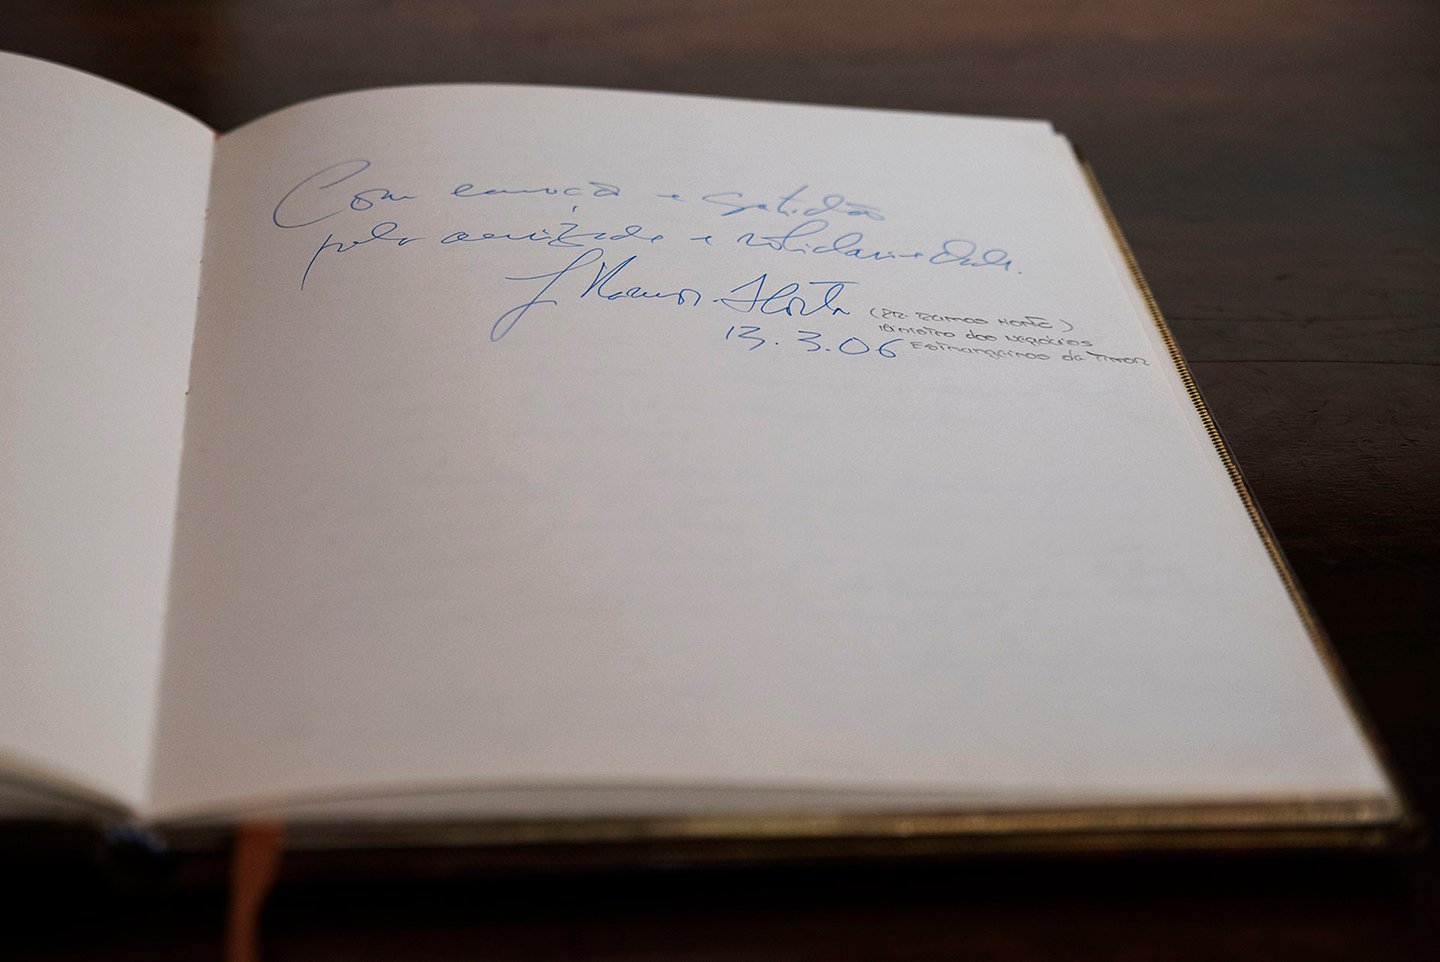 Com emoção e gratidão
pela amizade e solidariedade.
J. Ramos-Horta
13.3.06
(Dr. Ramos Horta)
Ministro dos Negócios
Estrangeiros de Timor